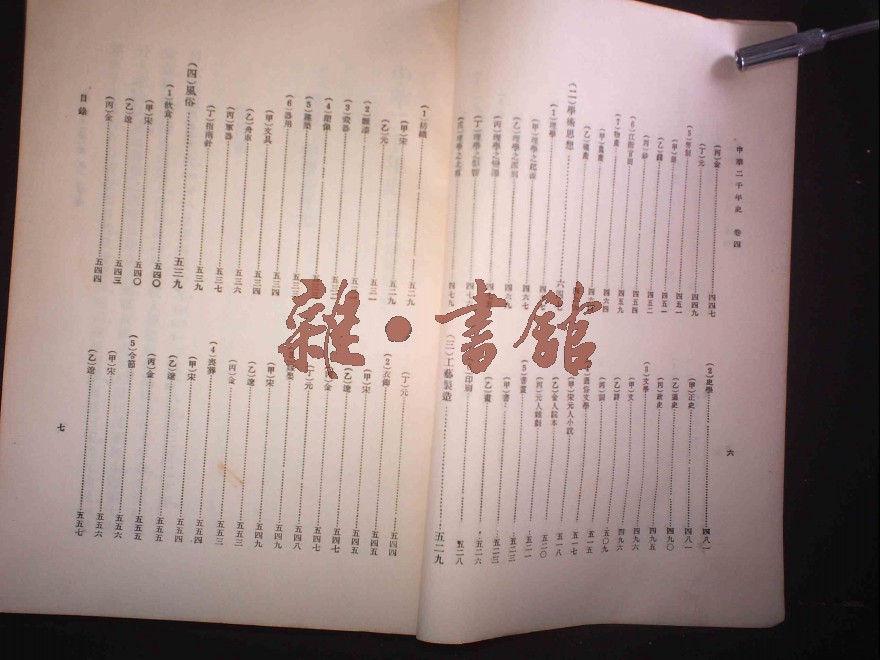 中華二千年史 卷四
六
(丙)金 四四七
(丁)元 四四九
四五一
(乙) 四五一
四五二
(6) 四五四
(7)物產 四五九
(甲)農產 四六四
(乙)礦產
(二)學術思想
(1)理學
(甲)理學之起源 四六七
(乙)理學之派別 四六九
(丙)理學之變遷
(丁)理學之影響
四七九
(2)史學 四八一
(甲)正史 四八一
(乙)通史 四九〇
(丙)政史 四九五
(3)文學 四九六
(甲)文 四九六
(乙)詩 五〇九
(丙)詞 五一五
通俗文學 五一七
(甲)宋元人小說 五一八
(乙)金人院本 五二〇
(丙)元人雜劇 五二一
(5)書畫 五二三
(甲)書 五二三
(乙)畫 五二六
印刷 五二八
(三)工藝製造 五二九
(1)紡織 五二九
(甲)宋 五二九
(乙)元 五三一
(2)雕漆
(3)瓷器
(4)塑像
(5)建築
(6)器用 五三四
(甲)文具 五三四
(乙)舟車 五三六
(丙)軍器 五三七
(丁)指南針 五三九
(四)風俗 五三九
(1)飲食 五四〇
(甲)宋 五四〇
(乙)遼 五四三
(丙)金 五四四
目錄
(丁)元 五四四
(2)衣飾 五四五
(甲)宋 五四五
(乙)遼 五四七
金 五四七
(丁)元 五四八
五四九
(甲)宋 五四九
(乙)遼 五五三
(丙)金 五五三
(4)喪葬 五五四
(甲)宋 五五四
(乙)遼 五五五
(丙)金 五五五
(5)令節 五五五
(甲)宋 五五六
(乙)遼 五五七
七
雜·書館